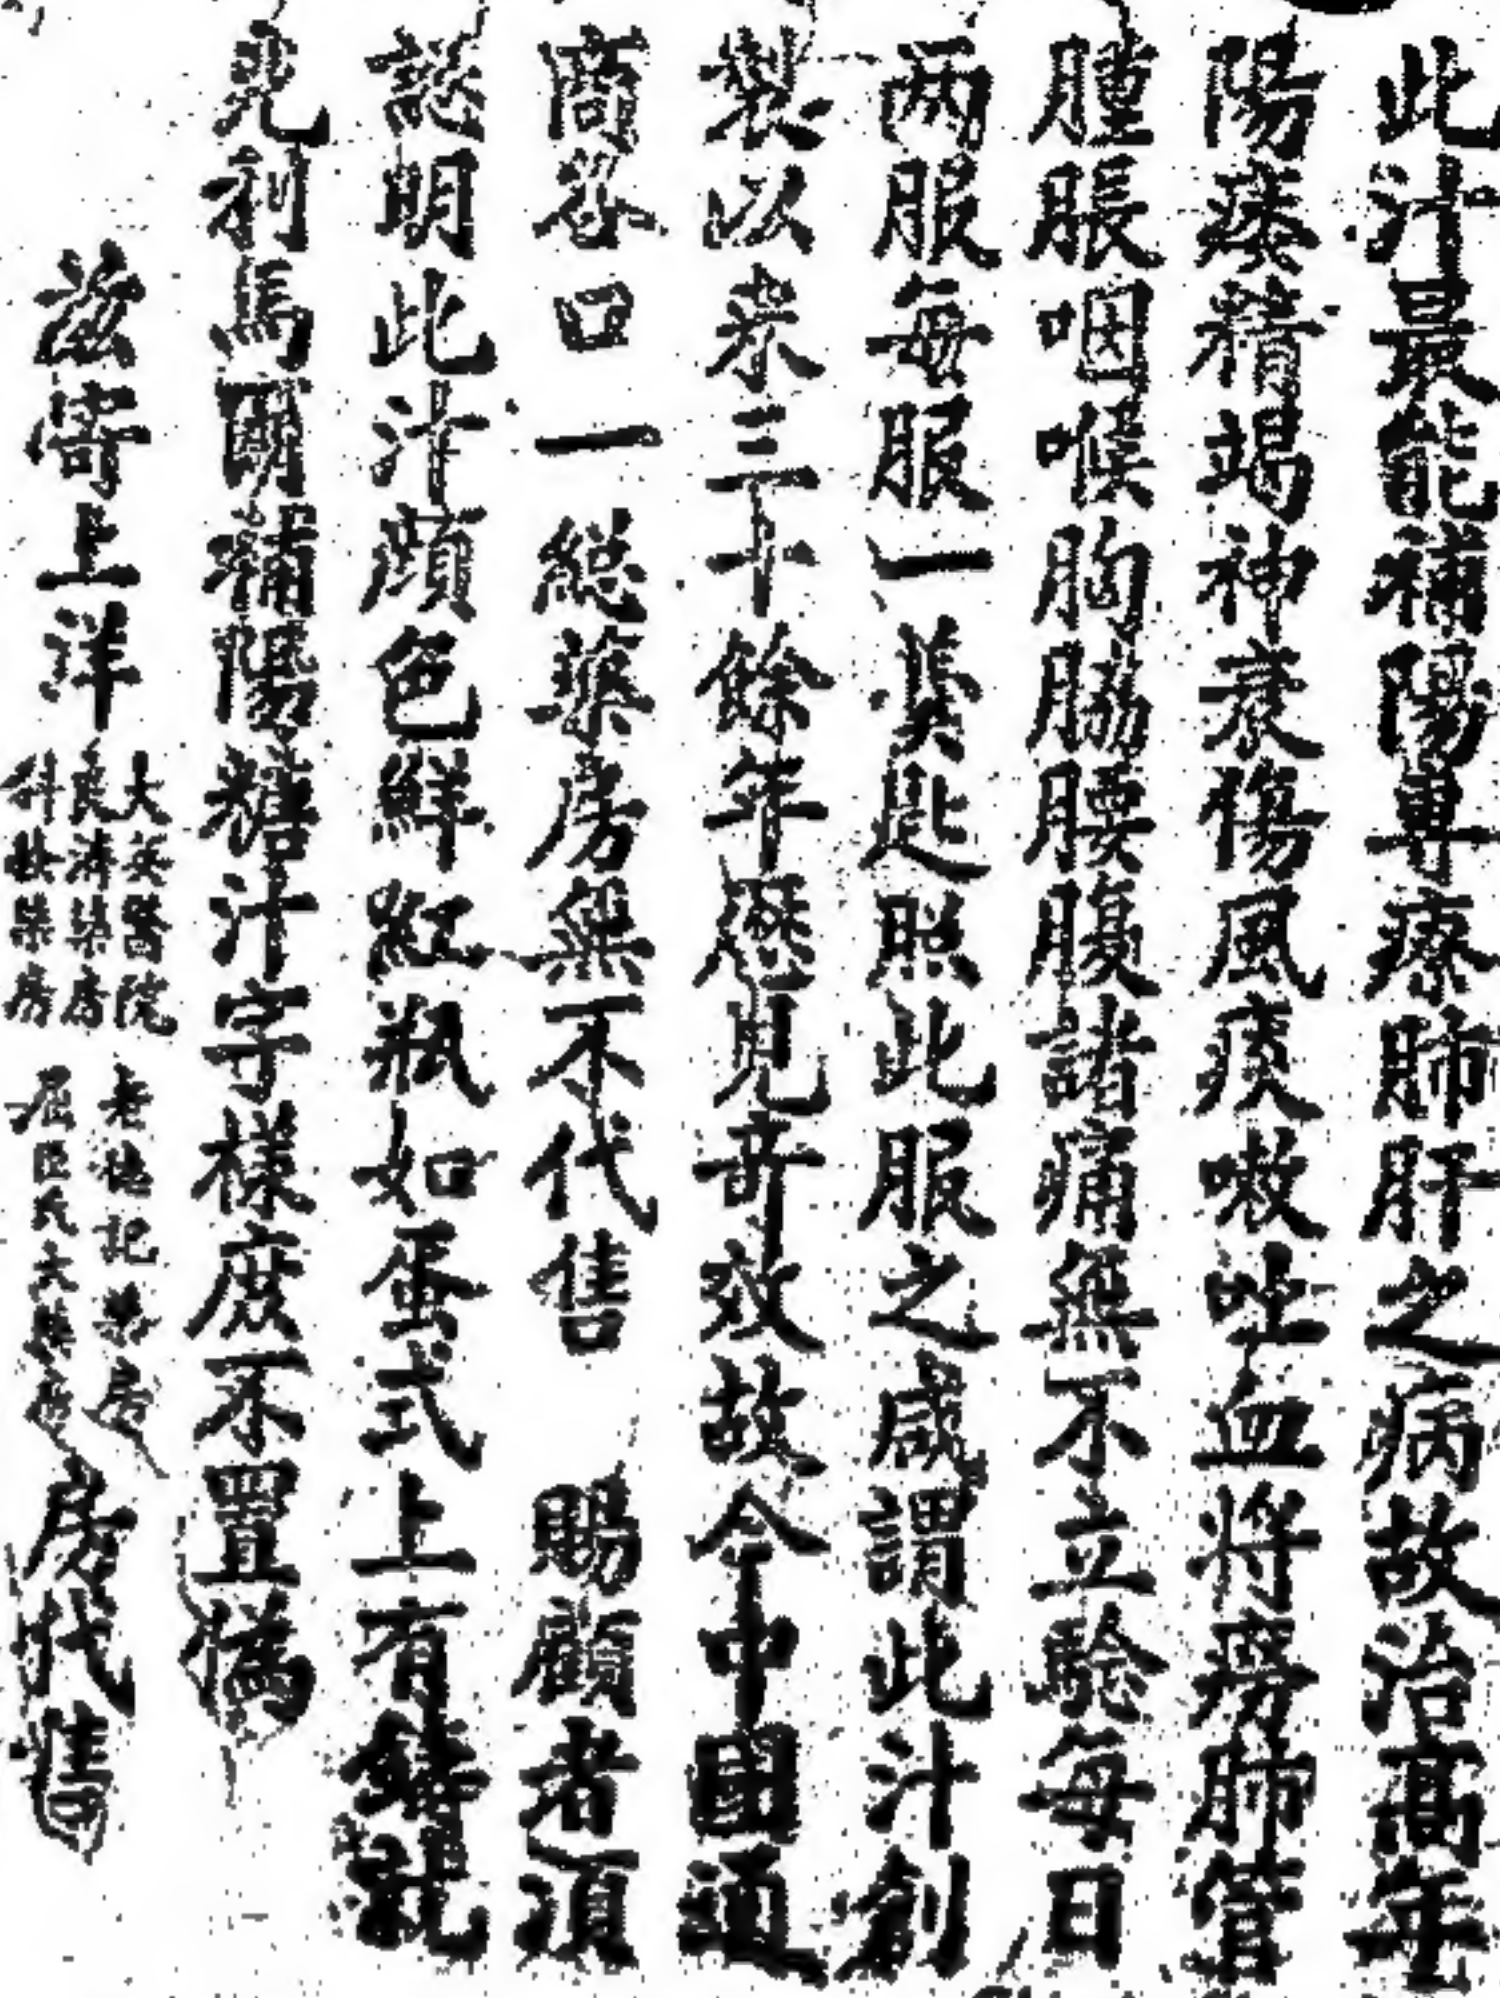 此汁最能補陽専療肺肝之病故治高年
陽痿精竭神衰傷風痰嗽吐血将癆肺管
腫脹咽喉胸脇腰腹諸痛無不立騐每日
两服每服一羮匙照此服之咸謂此汁創
製以来三十餘年歴見竒效故今中國通
商各口一總藥房無不代售 賜顧者須
認明此汁顔色鮮紅瓶如蛋式上有鑄就
見利馬爾補陽糖汁字樣庶不置僞
兹寄上洋
大英醫院
良濟藥房
科發藥房
老德記藥房
屈臣氏大藥房
房代售